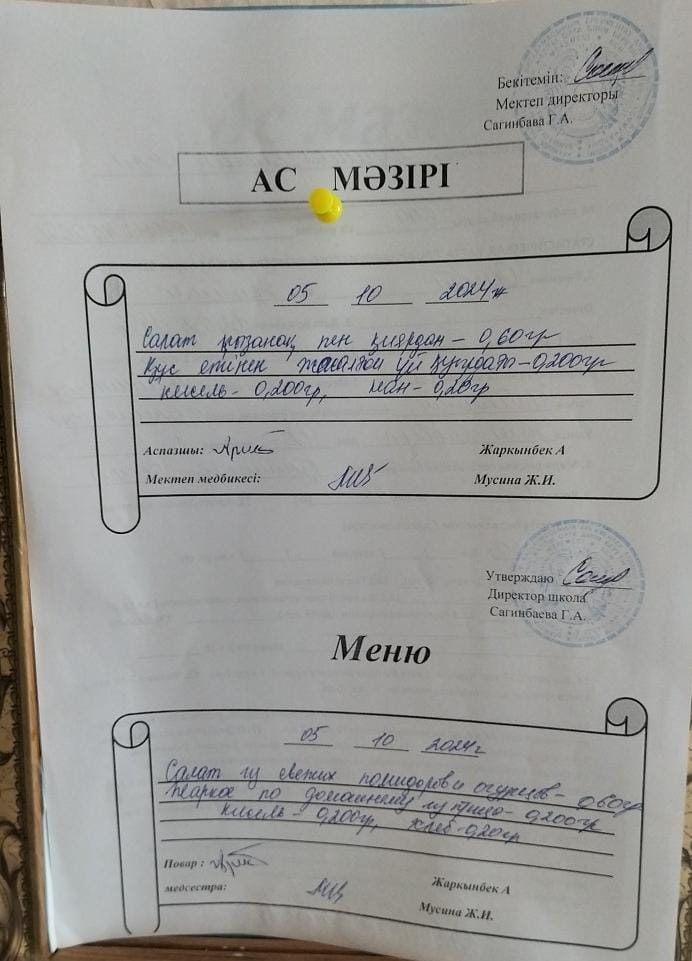 Бекітемін:
Мектеп директоры
Сагинбава Г.А.
АС МӘЗІРІ
05 10 2024ж
Салат қызанақ пен қиярдан – 0,60гр
Құс етінен жасалған үй қуырдағы – 0,200гр
кисель – 0,200гр, нан – 0,20гр
Аспазшы: Жаркынбек А
Мектеп медбикесі: Мусина Ж.И.
Утверждаю
Директор школа
Сагинбаева Г.А.
Меню
05 10 2024г
Салат из свежих помидоров и огурцов – 0,60гр
Жаркое по домашнему из курицы – 0,200гр
кисель – 0,200гр, хлеб – 0,20гр
Повар : Жаркынбек А
медсестра: Мусина Ж.И.